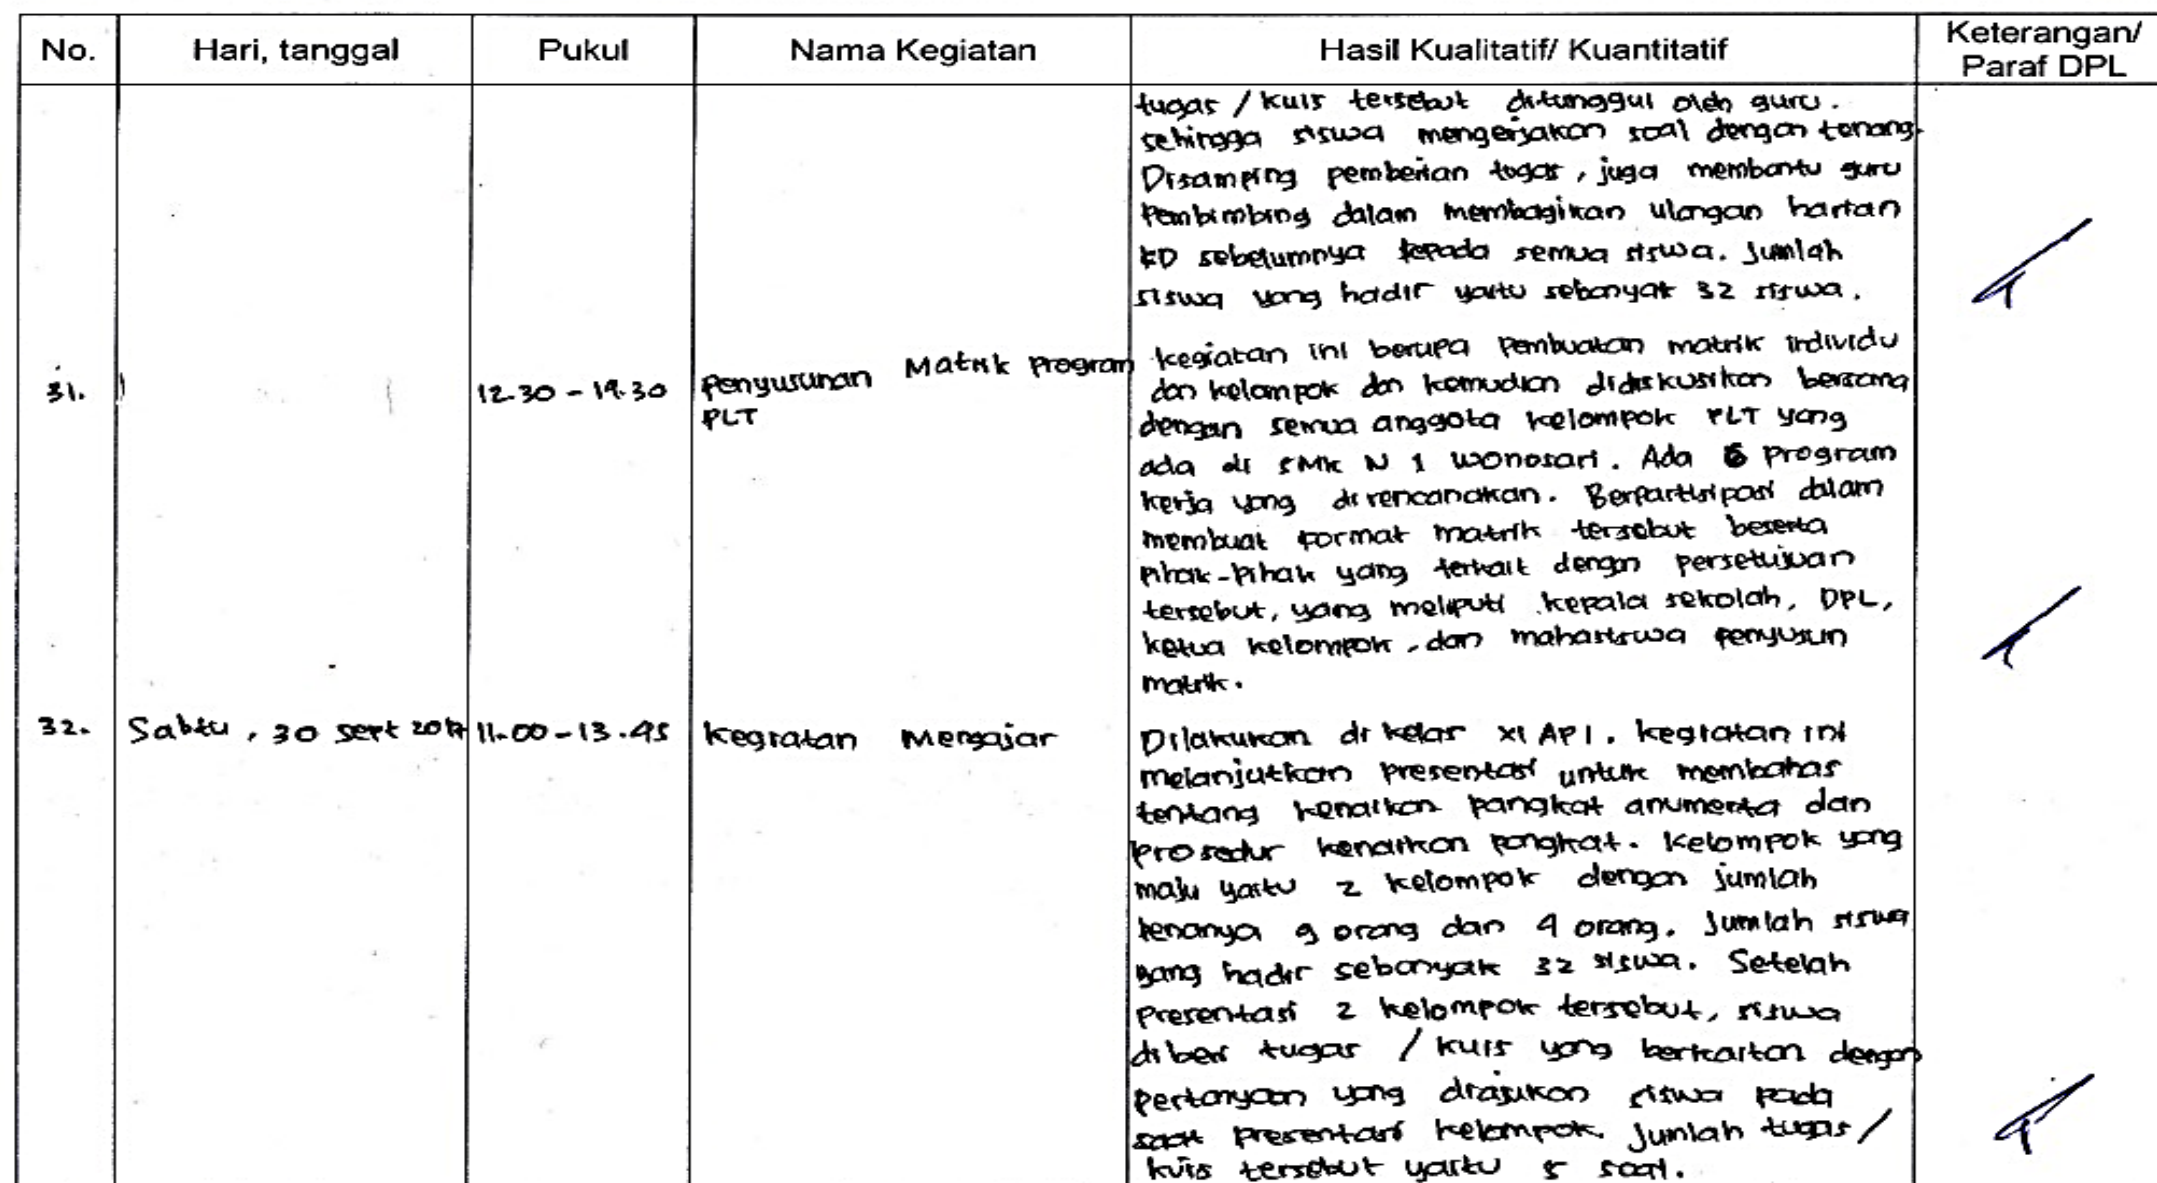 No. Hari, tanggal Pukul Nama Kegiatan Hasil Kualitatif/ Kuantitatif Keterangan/ Paraf DPL
tugas / kuis tersebut ditunggui oleh guru.
sehingga siswa mengerjakan soal dengan tenang.
Disamping pemberian tugas, juga membantu guru
pembimbing dalam membagikan ulangan harian
KD sebelumnya kepada semua siswa. Jumlah
siswa yang hadir yaitu sebanyak 32 siswa.
31. 12.30 - 14.30 Penyusunan Matrik Program PLT
kegiatan ini berupa pembuatan matrik individu
dan kelompok dan kemudian didiskusikan bersama
dengan semua anggota kelompok PLT yang
ada di SMK N 1 Wonosari. Ada 6 program
kerja yang direncanakan. Berpartisipasi dalam
membuat format matrik tersebut beserta
pihak-pihak yang terkait dengn persetujuan
tersebut, yang meliputi kepala sekolah, DPL,
ketua kelompok, dan mahasiswa penyusun
matrik.
32. Sabtu, 30 Sept 2017 11.00 - 13.45 Kegiatan Mengajar
Dilakukan di kelas XI AP 1. kegiatan ini
melanjutkan presentasi untuk membahas
tentang kenaikan pangkat anumerta dan
prosedur kenaikan pangkat. Kelompok yang
maju yaitu 2 kelompok dengan jumlah
orang dan 4 orang. Jumlah siswa
yang hadir sebanyak 32 siswa. Setelah
presentasi 2 kelompok tersebut, siswa
diberi tugas / kuis yang berkaitan dengan
pertanyaan yang diajukan siswa pada
saat presentasi kelompok. Jumlah tugas /
kuis tersebut yaitu 5 soal.